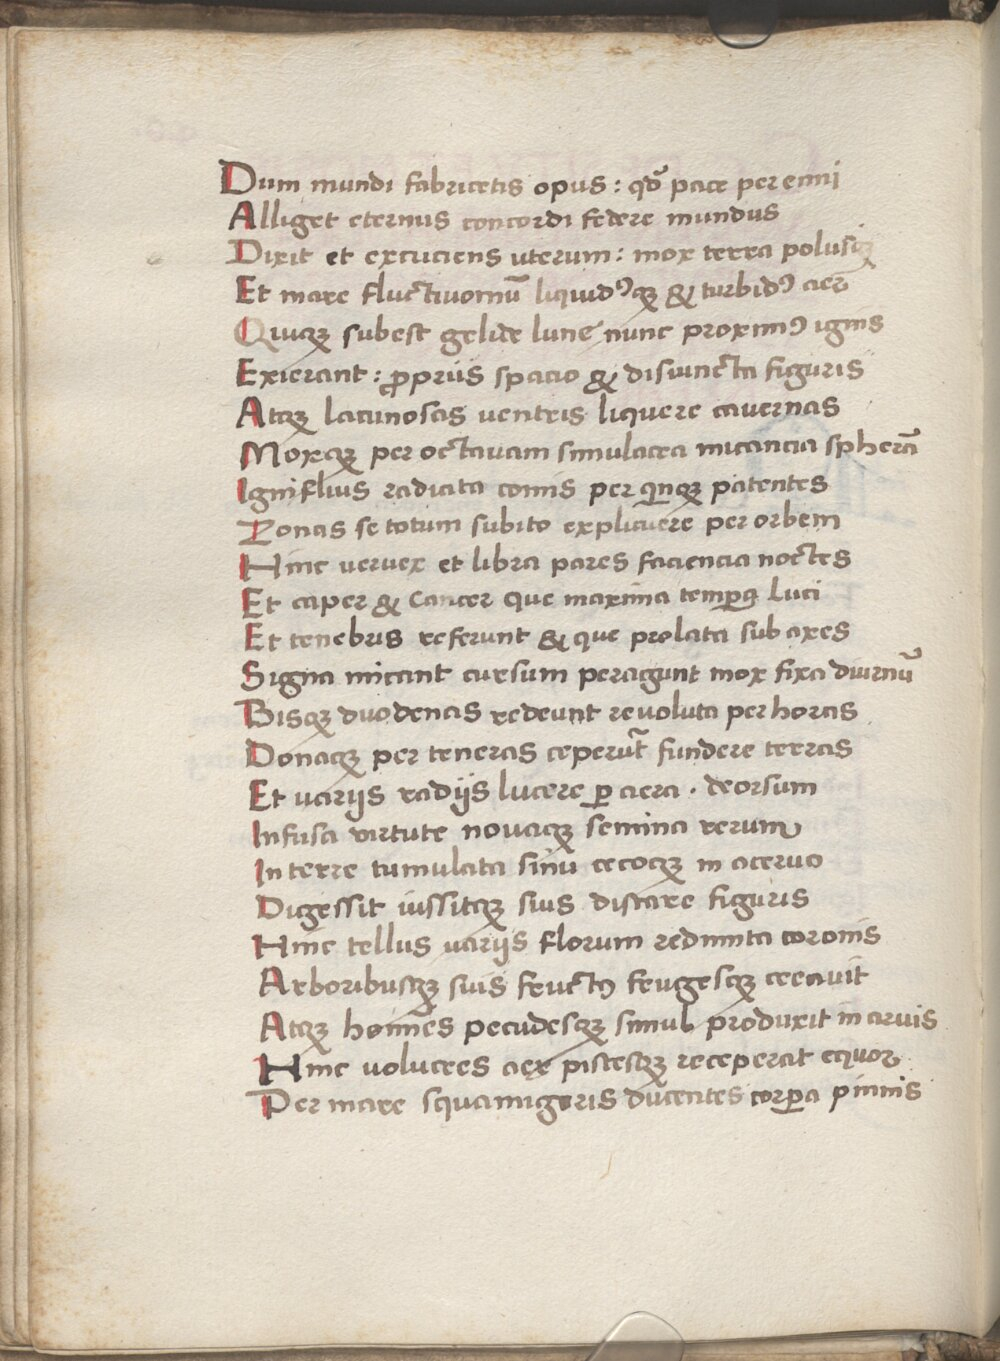 Dum mundi fabricetis opus : qđ pace perenni
Alliget eternus concordi federe mundus
Dixit et excuciens uterum : mox terra polusqꝫ
Et mare fluctiuomū liquidꝰqꝫ & turbidꝰ aer
Quiqꝫ subest gelide lune nunc proximꝰ ignis
Exierant : ꝓpriis spacio & disiuncta figuris
Atqꝫ lacunosas uentris liquere cauernas
Moxqꝫ per octauam simulacra micancia spherā
Igniflius radiata comis per qinqꝫ patentes
Zonas se totum subito explicuere per orbem
Hinc veruex et libra pares faciencia noctes
Et caper & Cancer que maxima temꝑa luci
Et tenebris referunt & que prolata sub axes
Signa micant cursum peragunt mox fixa diurnū
Bisqꝫ duodenas redeunt reuoluta per horas
Donaqꝫ per teneras ceperūt fundere terras
Et varijs radijs lucere ꝑ aera . deorsum
Infusa virtute nouaqꝫ semina rerum
In terre tumulata sinu cecoqꝫ in aceruo
Digessit iussitqꝫ suis distare figuris
Hinc tellus varijs florum redimita coronis
Arboribusqꝫ suis fructꝰ frugesqꝫ creauit
Atqꝫ hoīnes pecudesqꝫ simul produxit in aruis
Hinc uolucres aer piscesqꝫ receperat equoꝛ
Per mare squamigeris ducentes corꝑa pinnis